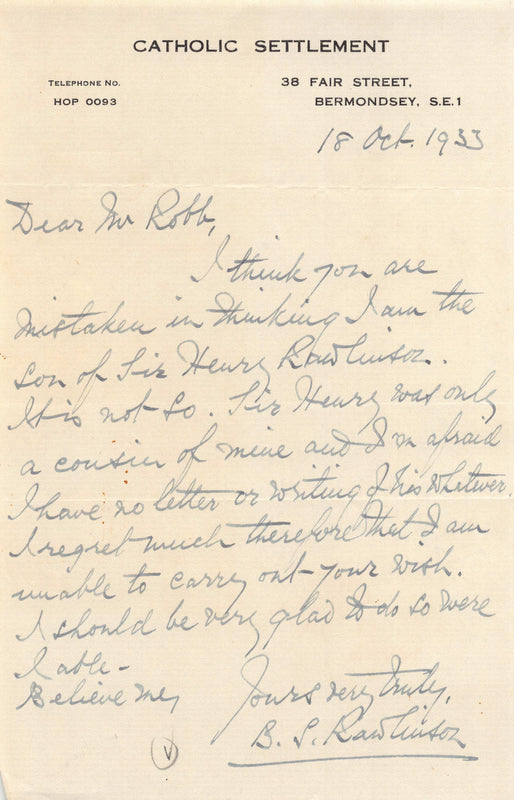 CATHOLIC SETTLEMENT
TELEPHONE NO.
HOP 0093
38 FAIR STREET,
BERMONDSEY, S.E.1
18 Oct. 1933
Dear Mr Robb,
I think you are
mistaken in thinking I am the
son of Sir Henry Rawlinson.
It is not so. Sir Henry was only
a cousin of mine and I'm afraid
I have no letter or writing of his whatever.
I regret much therefore that I am
unable to carry out your wish.
I should be very glad to do so were
I able-
Believe me,
Yours very truly,
B. S. Rawlinson